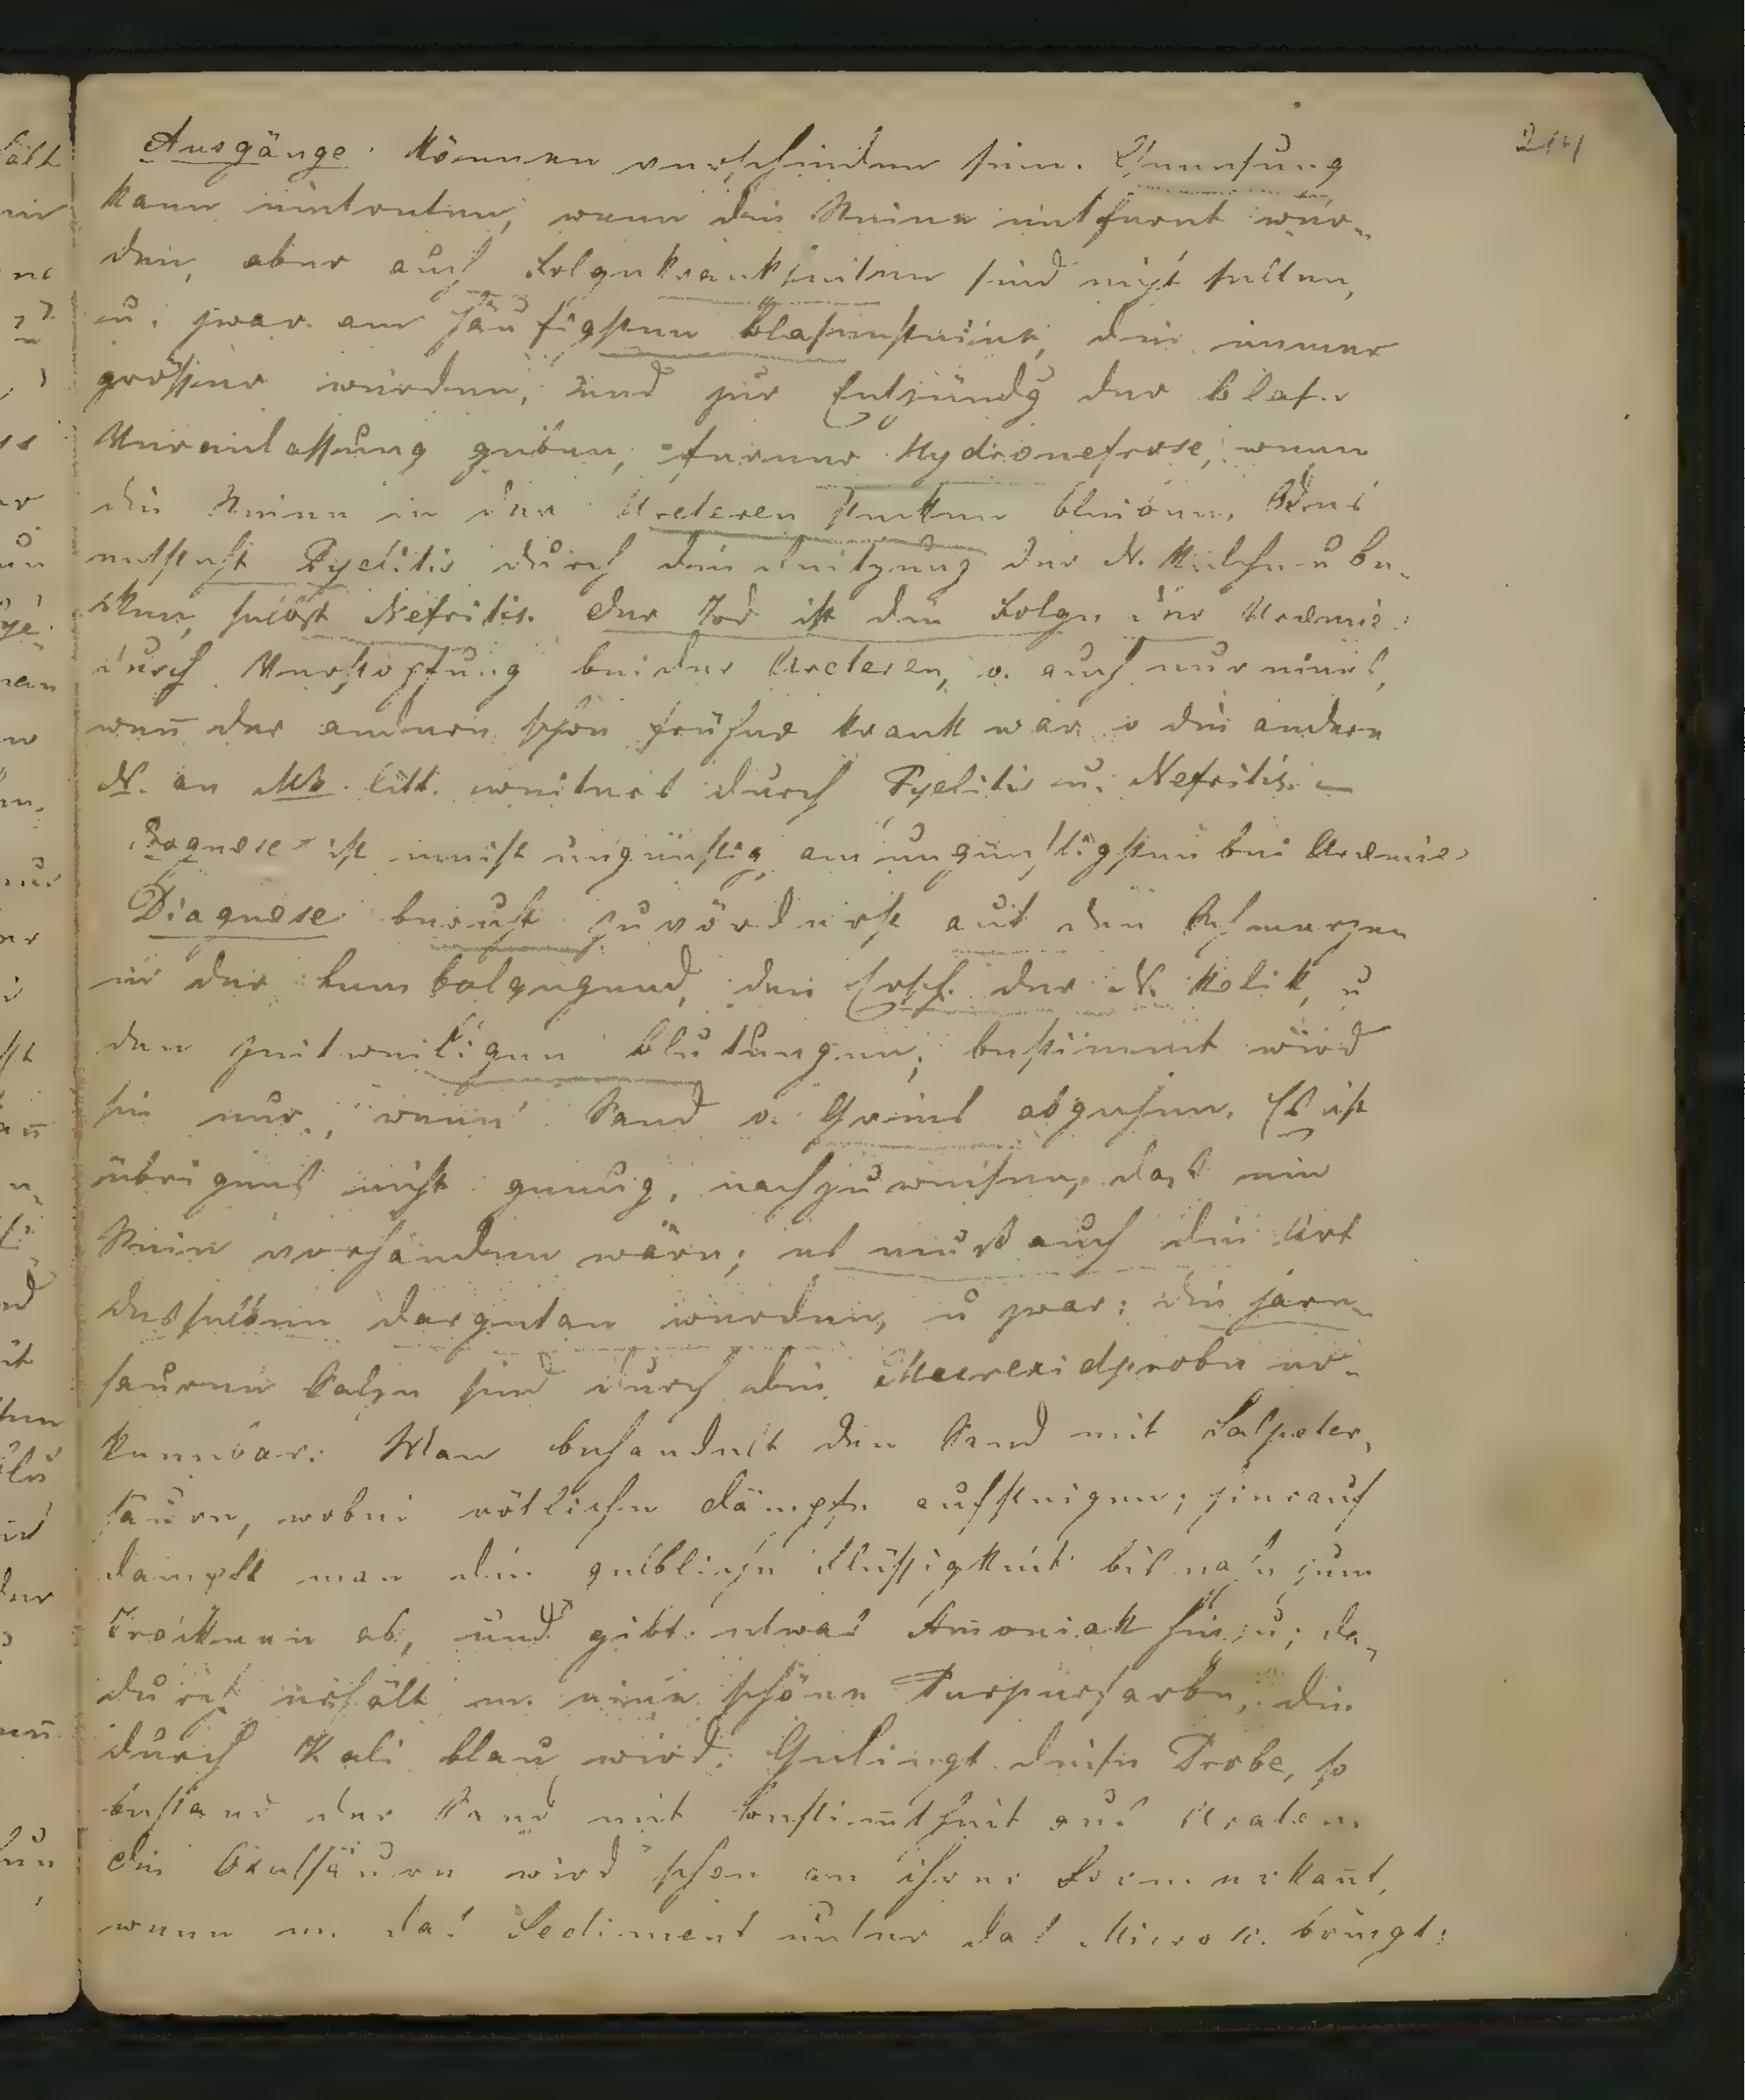 244
Ausgänge. Können verschieden sein. Genesung
kann eintreten, wenn die Steine entfernt wer-
den, aber auch Folgekrankheiten sind nicht selten,
u. zwar am häufigsten Blasensteine, die immer
grösser werden, und zur Entzündg der Blase
Veranlassung geben, ferner Hydronefrose, wenn
die Steine in den Ureteren stecken bleiben. Sonst
entsteht Pyelitis durch die Reitzung der N. Kelche u Be-
cken, selbst Nefritis. Der Tod ist die Folge der Uraemie
durch Verstopfung beider Ureteren, o. auch nur eines,
weñ der andere schon früher krank war o die andere
N. an Mb. litt. weiters durch Pyelitis u. Nefritis. —
Prognose ist meist ungünstig, am ungünstigsten bei Uraemie
Diagnose beruht zuvörderst auf den Schmerzen
in der Lumbalgegend, den Ersch. der N. Kolik, u
den zeitweiligen Blutungen; bestimmt wird
sie nur, wenn Sand o. Gries abgehen. Es ist
übrigens nicht genug, nachzuweisen, das ein
Stein vorhanden wäre; es muß auch die Art
desselben dargetan werden, u zwar: die harn-
sauren Salze sind durch die Murexidprobe er-
kennbar: Man behandelt den Sand mit Salpeter-
säure, wobei rötliche Dämpfe aufsteigen; hierauf
dampft man die gelbliche Flüssigkeit bis nahe zum
Trocknen ab, und gibt etwas Amoniak hinzu; da-
durch erhält m. eine schöne Purpurfarbe, die
durch Kali blau wird. Gelingt diese Probe, so
bestand der Sand mit Bestim̄theit aus Uraten
die Oxalsäure wird schon an ihrer Form erkañt,
wenn m. das Sediment unter das Microsk. bringt: